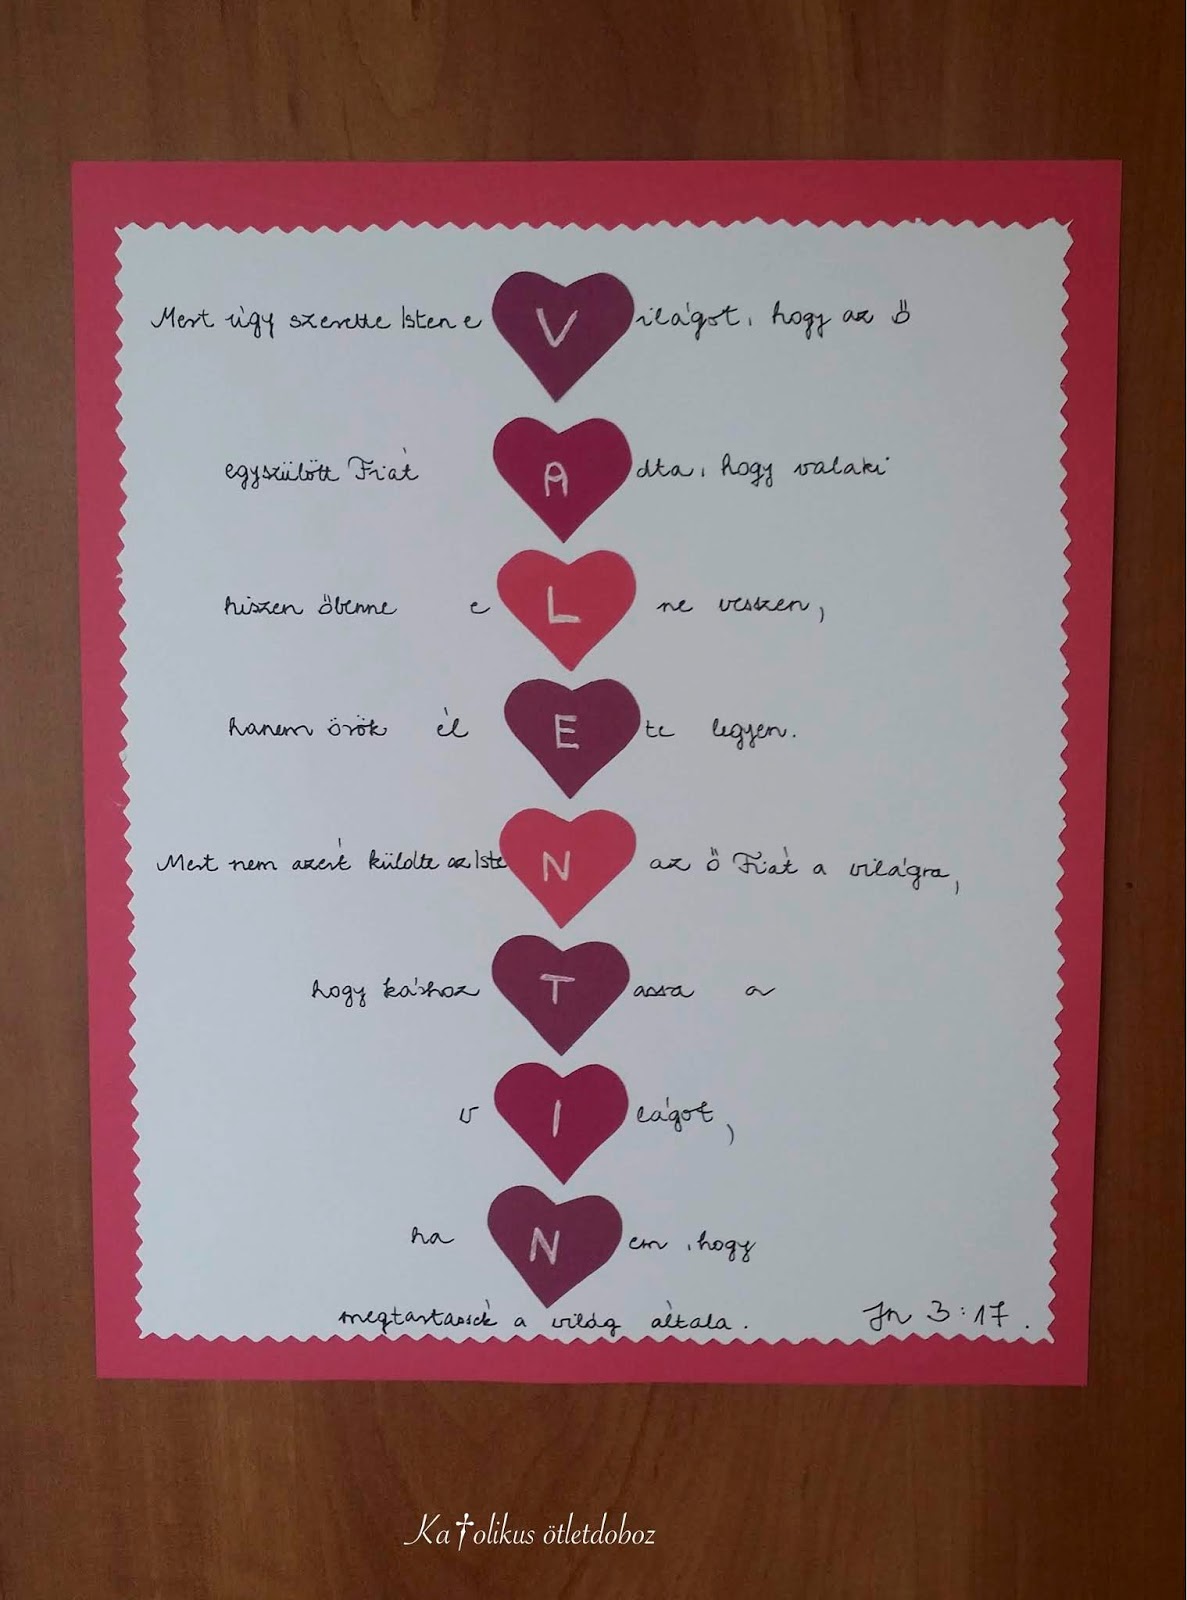 Mert úgy szerette Isten e Világot, hogy az ő
egyszülött Fiát Adta, hogy valaki
hiszen őbenne eL ne vesszen,
hanem örök élEte legyen.
Mert nem azért küldte az IsteN az ő Fiát a világra,
hogy kárhozTassa a
vIlágot,
haNem, hogy
megtartassék a világ általa. Jn 3:17.
Ka†olikus ötletdoboz